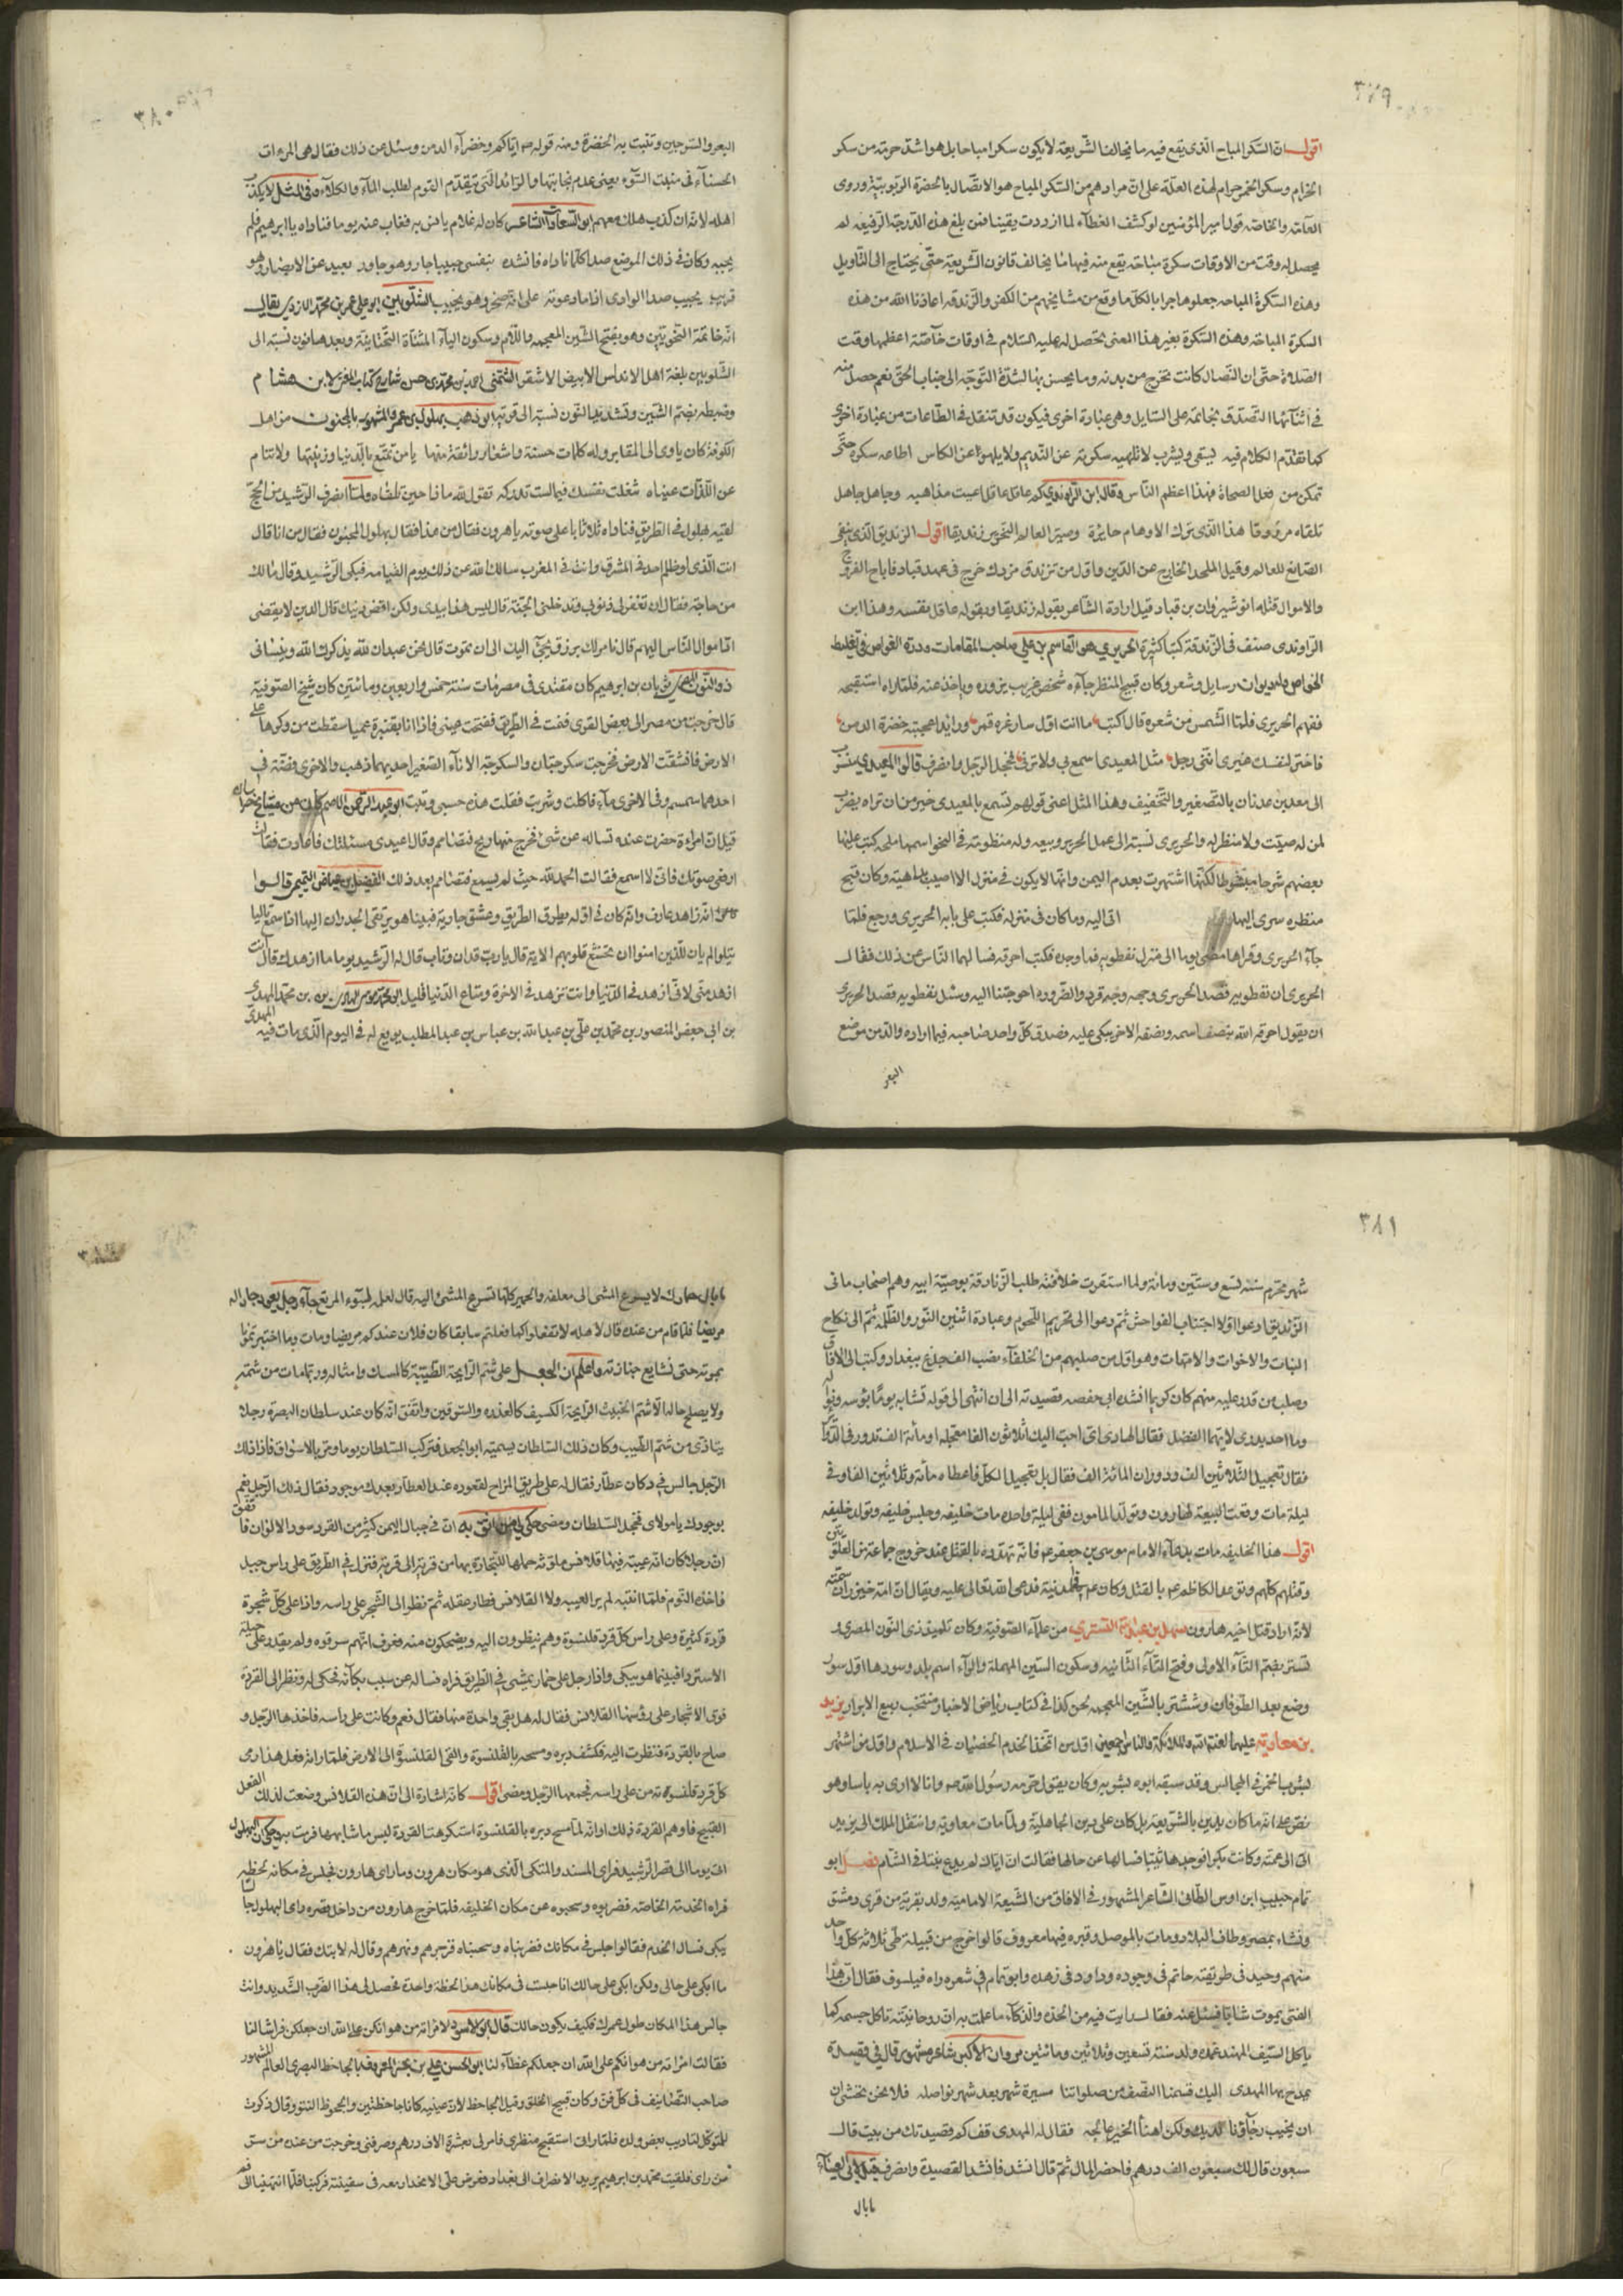 ٣٧٩
اقول ان السكر المباح الذى يقع فيه ما يخالف الشريعة لا يكون سكرا مباحا بل هو اشد حرمة من سكر
الحرام وسكر الخمر حرام لهذه العلة على ان مرادهم من السكر المباح هو الاتصال بالحضرة الربوبية وروى
العامة والخاصة قول امير المؤمنين لو كشف الغطاء لما ازددت يقينا فمن بلغ هذه الدرجة الرفيعة لم
يحصل له وقت من الاوقات سكرة مباحة يقع منه فيها ما يخالف قانون الشريعة حتى يحتاج الى التاويل
وهذه السكرة المباحه جعلوها جرابا لكل ما وقع من مشايخهم من الكفر والزندقه اعاذنا الله من هذه
السكرة المباحة وهذه السكرة بغير هذا المعنى تحصل له عليه السلام فى اوقات خاصة اعظمها وقت
الصلوة حتى ان النصال كانت تخرج من بدنه وما يحس بها لشدة التوجه الى جناب الحق نعم حصل منه
فى اثنائها التصدق بخاتمه على السايل وهى عبادة اخرى فيكون قد تنقل فى الطاعات من عبادة اخرى
كما تقدم الكلام فيه يسقى ويشرب لا تلهيه سكرته عن النديم ولا يلهو عن الكاس اطاعه سكره حتى
تمكن من فعل الصحاة فهذا اعظم الناس وقال ابن الراوندى كم عاقل عاقل اعيت مذاهبه وجاهل جاهل
تلقاه مرزوقا هذا الذى ترك الاوهام حايرة وصير العالم النحرير زنديقا اقول الزنديق الذى ينفى
الصانع للعالم وقيل الملحد الخارج عن الدين واول من تزندق مزدك خرج فى عهد قباد فاباح الفروج
والاموال قتله انوشيروان بن قباد قيل ارادة الشاعر بقوله زنديقا وبقوله عاقل نفسه وهذا ابن
الراوندى صنف فى الزندقة كتبا كثيرة الحريرى هو القاسم بن على صاحب المقامات ودرة الغواص فى تغليط
الخواص وله ديوان رسايل وشعر وكان قبيح المنظر جاءه شخص غريب يزوره وياخذ عنه فلما راه استقبحه
ففهم الحريرى فلما التمس من شعره قال اكتب ما انت اول سار غره قمر ورائد اعجبته خضرة الدمن
فاختر لنفسك غيرى اننى رجل مثل المعيدى اسمع بى ولا ترنى فخجل الرجل وانصرف قالوا المعيدى منسوب
الى معد بن عدنان بالتصغير والتخفيف وهذا المثل اعنى قولهم تسمع بالمعيدى خير من ان تراه يضرب
لمن له صيت ولا منظر له والحريرى نسبته الى عمل الحرير وبيعه وله منظومة فى النحو اسمها ملحه كتب عليها
بعضهم شرحا مبسوطا لكنها اشتهرت بعدم اليمن وانها لا يكون فى منزل الا اصيب باهيته وكان قبيح
منظره سرى اليها اتى اليه وما كان فى منزله فكتب على بابه الحريرى ورجع فلما
جاء الحريرى وقراها مضى يوما الى منزل نفطويه فما وجده فكتب احرقه فسالهما الناس عن ذلك فقال
الحريرى ان نفطويه قصد الحريرى وجهه وجه قرد والضروره احوجتنا اليه وسئل نفطويه قصد الحريرى
ان يقول احرقه الله بنصف اسمه ونصفه الاخر يبكى عليه فصدق كل واحد صاحبه فيما اراده والدمن موضع
البعر
٣٨٠
البعر والسرجين وتنبت به الخضرة ومنه قوله ص اياكم وخضراء الدمن وسئل عن ذلك فقال هى المراة
الحسناء فى منبت السوء يعنى عدم نجابتها والرائد الذى يتقدم القوم لطلب الماء والكلاء وفى المثل لا يكذب
اهله لانه ان كذب هلك معهم ابو السعادات الشاعر كان له غلام يانس به فغاب عنه يوما فناداه يا ابراهيم فلم
يجبه وكان فى ذلك الموضع صدا كلما ناداه فانشده بنفسى حبيب جار وهو جاور بعيد عن الابصار وهو
قريب يجيب صدا الوادى اذا ما دعوته على انه صخر وهو يجيب الشلوبين ابو على عمر بن محمد الازدى يقال
انه خاتمة النحويين وهو بفتح الشين المعجمه واللام وسكون الياء المثناة التحتانية وبعدها نون نسبته الى
الشلوبين بلغة اهل الاندلس الابيض الاشقر الشمنى احمد بن محمد بن حسن شارح كتاب المغنى لابن هشام
وضبطه بضم الشين وتشديد النون نسبة الى قرية ابو وهب بهلول بن عمر والمشهور بالمجنون من اهل
الكوفة كان ياوى الى المقابر وله كلمات حسنة واشعار رائقة منها يا من تمتع بالدنيا وزينتها ولا تنام
عن اللذات عيناه شغلت نفسك فيما لست تدركه تقول لله ماذا حين تلقاه ولما انصرف الرشيد من الحج
لقيه بهلول فى الطريق فناداه ثلاثا با على صوته يا هرون فقال من هذا فقال بهلول المجنون فقال من انا قال
انت الذى لو ظلم احد فى المشرق وانت فى المغرب سالك الله عن ذلك يوم القيامه فبكى الرشيد وقال ما لك
من حاجة فقال ان تغفر لى ذنوبى وتدخلنى الجنة قال ليس هذا بيدى ولكن اقض دينك قال الدين لا يقضى
اد اموال الناس اليهم قال نامر لك برزق يجئ اليك الى ان تموت قال نحن عبدان لله يذكرك الله وينسانى
ذو النون المصرى ثوبان بن ابرهيم كان مقتدى فى مصر مات سنة خمس واربعين ومائتين كان شيخ الصوفية
قال خرجت من مصر الى بعض القرى فنمت فى الطريق ففتحت عينى فاذا انا بقنبرة عميا سقطت من وكرها على
الارض فانشقت الارض فخرجت سكرجتان والسكرجة الاناء الصغير احديهما ذهب والاخرى فضة فى
احدهما سمسم وفى الاخرى ماء فاكلت وشربت فقلت هذه حسبى وتبت ابو عبد الرحمن الاصم كان من مشايخ خراسان
قيل ان امراءة حضرت عنده تساله عن شئ فخرج منها ريح فتصامم وقال اعيدى مسئلتك فاعادت فقال
ارفعى صوتك فانى لا اسمع فقالت الحمد لله حيث لم يسمع فتصامم بعد ذلك الفضيل بن عياض التميمى قالوا
انه زاهد عارف وانه كان فى اوله يطرق الطريق وعشق جارية فبينا هو يرتقى الجدران اليها اذا سمع تاليا
يتلو الم يان للذين امنوا ان تخشع قلوبهم الاية قال يا رب قد ان وتاب قال له الرشيد يوما ما ازهدك قال انت
ازهد منى لانى ازهد فى الدنيا وانت تزهد فى الاخرة ومتاع الدنيا قليل ابو محمد موسى الهادى بن محمد المهدى
بن ابى جعفر المنصور بن محمد بن على بن عبد الله بن عباس بن عبد المطلب بويع له فى اليوم الذى مات فيه المهدى
٣٨١
شهر محرم سنه تسع وستين ومائة ولما استقرت خلافته طلب الزنادقة بوصية ابيه وهم اصحاب مانى
الزنديق ادعوا اولا اجتناب الفواحش ثم دعوا الى تحريم اللحوم وعبادة اثنين النور والظلمه ثم الى نكاح
البنات والاخوات والامهات وهو اول من صلبهم من الخلفاء نصب الف جذع ببغداد وكتب الى الافاق
وصلب من قدر عليه منهم كان كريما انشد ابى حفصه قصيدته الى ان انتهى الى قوله تشابه يوما بؤسه ونواله
وما احد يدرى لايهما الفضل فقال الهادى اى احب اليك اثلاثون الفا معجله او مائة الف تدور فى الدواوين
فقال تعجيل الثلاثين الف ودوران المائة الف فقال بل تعجيل الكل فاعطاه مائة وثلاثين الفا وفى
ليلة مات وقعت البيعة لهارون وتولد المامون ففى ليلة واحده مات خليفه وجلس خليفه وتولد خليفه
اقول هذا الخليفه مات بدعاء الامام موسى بن جعفر عم فانه تهدده بالقتل عند خروج جماعة من العلويين
وقتلهم كلهم وتوعد الكاظم عم بالقتل وكان عم بالمدينة فدعى الله تعالى عليه ويقال ان امه خيزران سمته
لانه اراد قتل اخيه هارون سهل بن عبد الله التسترى من علماء الصوفية وكان تلميذ ذى النون المصرى و
تستر بضم التاء الاولى وفتح التاء الثانيه وسكون السين المهملة والراء اسم بلد وسورها اول سور
وضع بعد الطوفان وششتر بالشين المعجمه لحن كذا فى كتاب رياض الاخبار منتخب ربيع الابرار يزيد
بن معاوية عليهما لعنة الله والملائكة والناس اجمعين اول من اتخذ الخدم الخصيان فى الاسلام واول من اشتهر
بشرب الخمر فى المجالس وقد سبقه ابوه بشربه وكان يقول حرمه رسول الله ص وانا لا ارى به باسا وهو
نص على انه ما كان يدين بالشريعة بل كان على دين الجاهلية ولما مات معاوية وانتقل الملك الى يزيد
اتى الى عمته وكانت بكرا فوجدها ثيبا فسالها عن حالها فقالت ان اباك لم يدع بنتا فى الشام فصل ابو
تمام حبيب ابن اوس الطائى الشاعر المشهور فى الافاق من الشيعة الامامية ولد بقرية من قرى دمشق
ونشاء بمصر وطاف البلاد ومات بالموصل وقبره فيها معروف قالوا خرج من قبيلة طى ثلاثة كل واحد
منهم وحيد فى طريقته حاتم فى وجوده وداود فى زهده وابو تمام فى شعره راه فيلسوف فقال ان هذا
الفتى يموت شابا فسئل عنه فقال رايت فيه من الحدة والذكاء ما علمت به ان روحانيته تاكل جسمه كما
ياكل السيف المهند غمده ولد سنة تسعين وثلاثين ومائتين مروان الاكبر شاعر مشهور قال فى قصيدة
يمدح بها المهدى اليك قسمنا النصف من صلواتنا مسيرة شهر بعد شهر نواصله فلا نحن نخشى ان
ان يخيب رجاؤنا لديك ولكن اهنأ الخير عاجله فقال له المهدى قف كم قصيدتك من بيت قال
سبعون قال لك سبعون الف درهم فاحضر المال ثم قال انشد فانشد القصيدة وانصرف قيل لابى العيناء
ما بال
ما بال حمارك لا يسرع المشى الى معلفه والحمير كلها تسرع المشى اليه قال لعله لسوء المرتع جاء رجل يعود جارا له
مريضا فلما قام من عنده قال لاهله لا تفعلوا كما فعلتم سابقا كان فلان عندكم مريضا ومات وما اخبرتمونا
بموته حتى نشايع جنازته واعلم ان الجعل على شم الرايحة الطيبة كالمسك وامثاله وربما مات من شمه
ولا يصلح حاله الا شم الخبيث الرايحة الكسيف كالعذره والسرقين واتفق انه كان عند سلطان البصرة رجلا
يتاذى من شم الطيب وكان ذلك السلطان يسميه ابو الجعل فركب السلطان يوما ومر بالاسواق فاذا ذلك
الرجل جالس فى دكان عطار فقال له على طريق المزاح لقعوده عند العطار بعدك موجود فقال ذلك الرجل نعم
بوجودك يا مولاى فخجل السلطان ومضى حكى لى من اثق به ان فى جبال اليمن كثير من القرد سود الالوان فاتفق
ان رجلا كان انه عيبة فيها قلانس ملونه حملها للتجارة بها من قرية الى قرية فنزل فى الطريق على راس جبل
فاخذه النوم فلما انتبه لم ير العيبه ولا القلانس فطار عقله ثم نظر الى الشجر على راسه واذا على كل شجرة
قردة كثيرة وعلى راس كل قرد قلنسوة وهم ينظرون اليه ويضحكون منه فعرف انهم سرقوه ولم يقدر على حيلة
الاسترداد فبينما هو يبكى واذا رجل على حمار يمشى فى الطريق فراه فساله عن سبب بكائه فحكى له ونظر الى القردة
فوق الاشجار على رؤسها القلانس فقال له هل بقى واحدة منها فقال نعم وكانت على راسه فاخذها الرجل و
صاح بالقردة فنظرت اليه فكشف دبره ومسحه بالقلنسوة والقى القلنسوة الى الارض فلما راته فعل هذا رمى
كل قرد قلنسوته من على راسه فجمعها الرجل ومضى اقول كانه اشارة الى ان هذه القلانس وضعت لذلك الفعل
القبيح فاوهم القردة ذلك او انه لما مسح دبره بالقلنسوة استكرهت القردة لبس ما شابهها فرمت به حكى ان البهلول
اتى يوما الى قصر الرشيد فراى المسند والمتكى الذى هو مكان هرون وما راى هارون فجلس فى مكانه لحظه
فراه الخدمة الخاصة فضربوه وسحبوه عن مكان الخليفه فلما خرج هارون من داخل قصره راى البهلول جالسا
يبكى فسال الخدم فقالوا جلس فى مكانك فضربناه وسحبناه فزجرهم ونهرهم وقال له لا تبك فقال يا هرون
ما ابكى على حالى ولكن ابكى على حالك انا جلست فى مكانك هذا لحظة واحدة فحصل لى هذا الضرب الشديد وانت
جالس هذا المكان طول عمرك فكيف يكون حالك قال ابو الاسود لامراته من هوانكن على الله ان جعلكن فراشا لنا
فقالت امراته من هوانكم على الله ان جعلكم غطاء لنا ابو الحسن على بن بحر المعروف بالجاحظ البصرى العالم المشهور
صاحب التصانيف فى كل فن وكان قبيح الخلق وقيل الجاحظ لان عينيه كانا جاحظتين والجحوظ النتو وقال ذكرت
للمتوكل لتاديب بعض ولده فلما رانى استقبح منظرى فامر لى بعشرة الاف درهم وصرفنى وخرجت من عنده من سر
من راى فلقيت محمد بن ابراهيم يريد الانصراف الى بغداد فعرض على الانحدار معه فى سفينته فركبنا فلما انتهينا الى